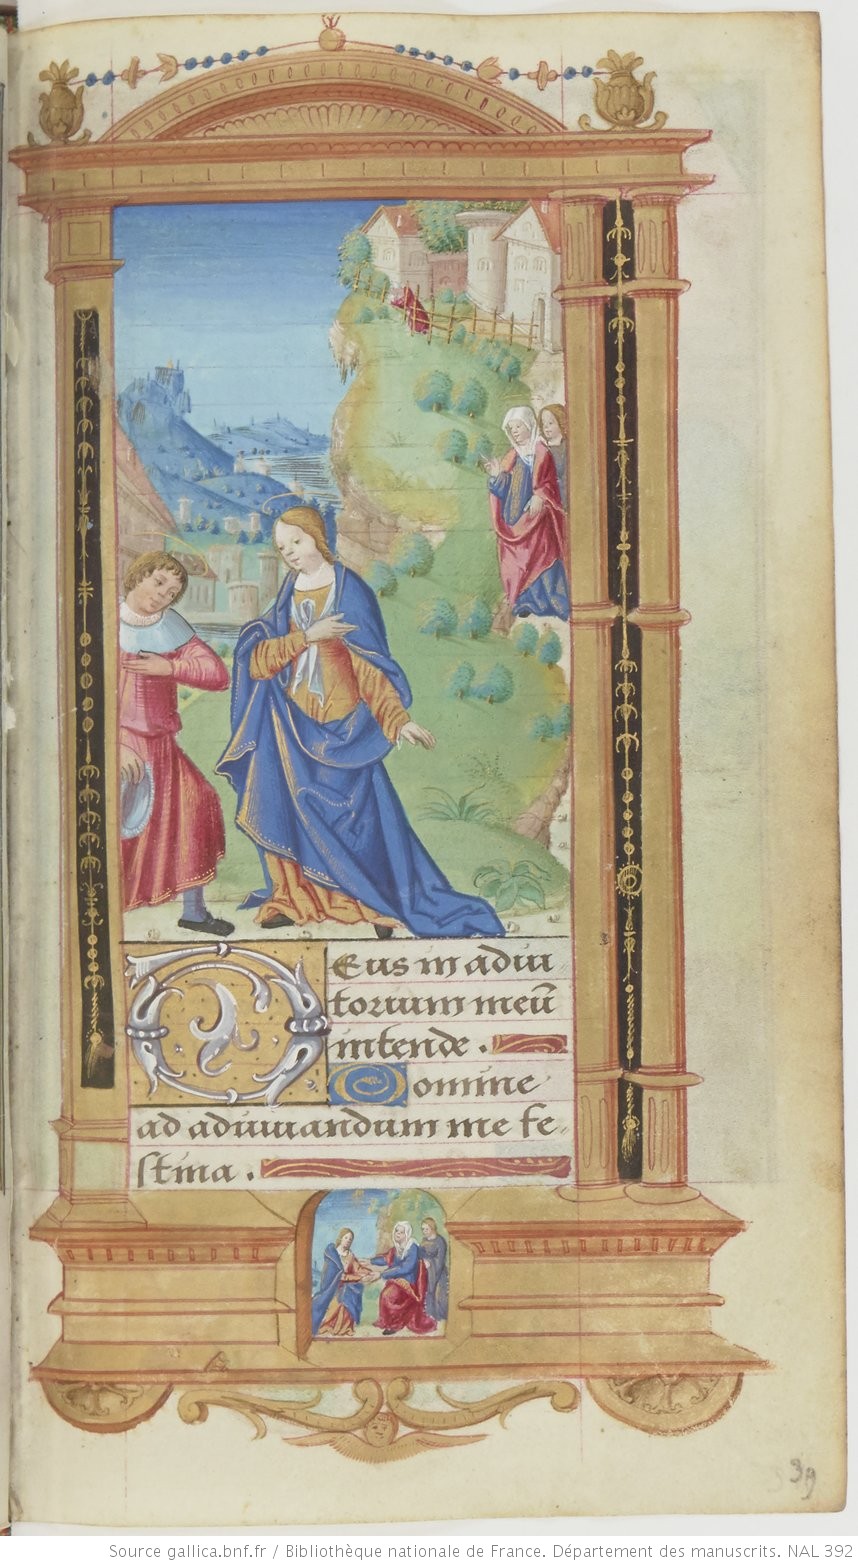 Deus in adiu
torium meū
intende.
Domine
ad adiuuandum me fe-
stina.
39
Source gallica.bnf.fr / Bibliothèque nationale de France. Département des manuscrits. NAL 392